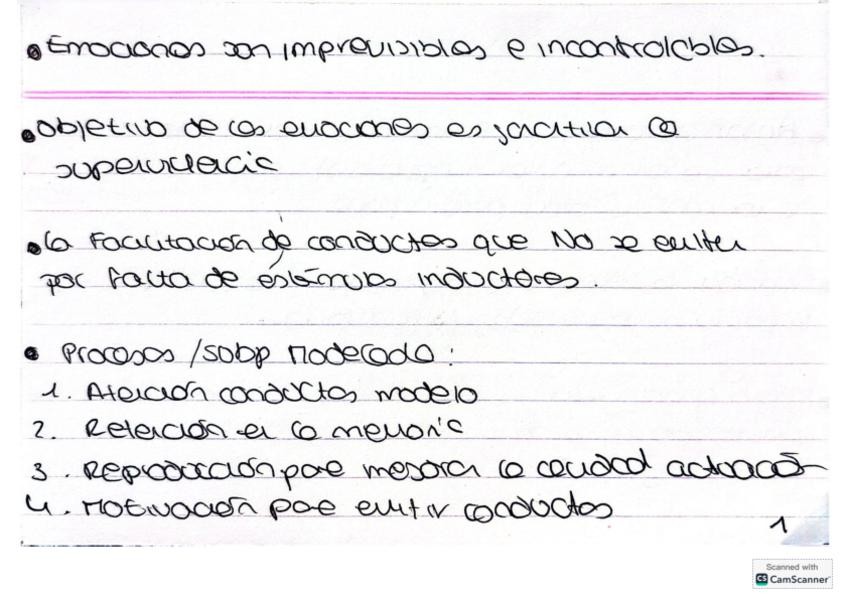 • Emociones son imprevisibles e incontrolables.
• Objetivo de las emociones es facilitar la
supervivencia
• la Facilitación de conductas que No se emiten
por falta de estímulos inductores.
• Procesos / subp Moderado:
1. Atención conductas modelo
2. Retención en la memoria
3. Reproducción para mejorar la calidad actuación
4. Motivación para emitir conductas
1
Scanned with
CS CamScanner